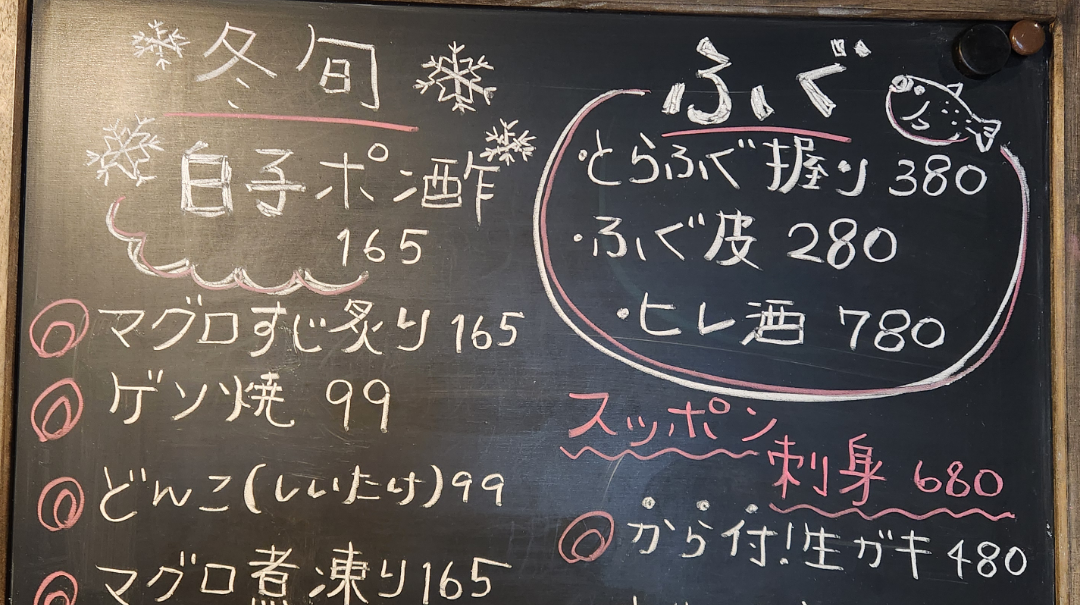 冬旬
白子ポン酢
165
マグロすじ炙り 165
ゲソ焼 99
どんこ(しいたけ)99
マグロ煮凍り165
ふぐ
・とらふぐ握り 380
・ふぐ皮 280
・ヒレ酒 780
スッポン
刺身 680
から付!生ガキ 480